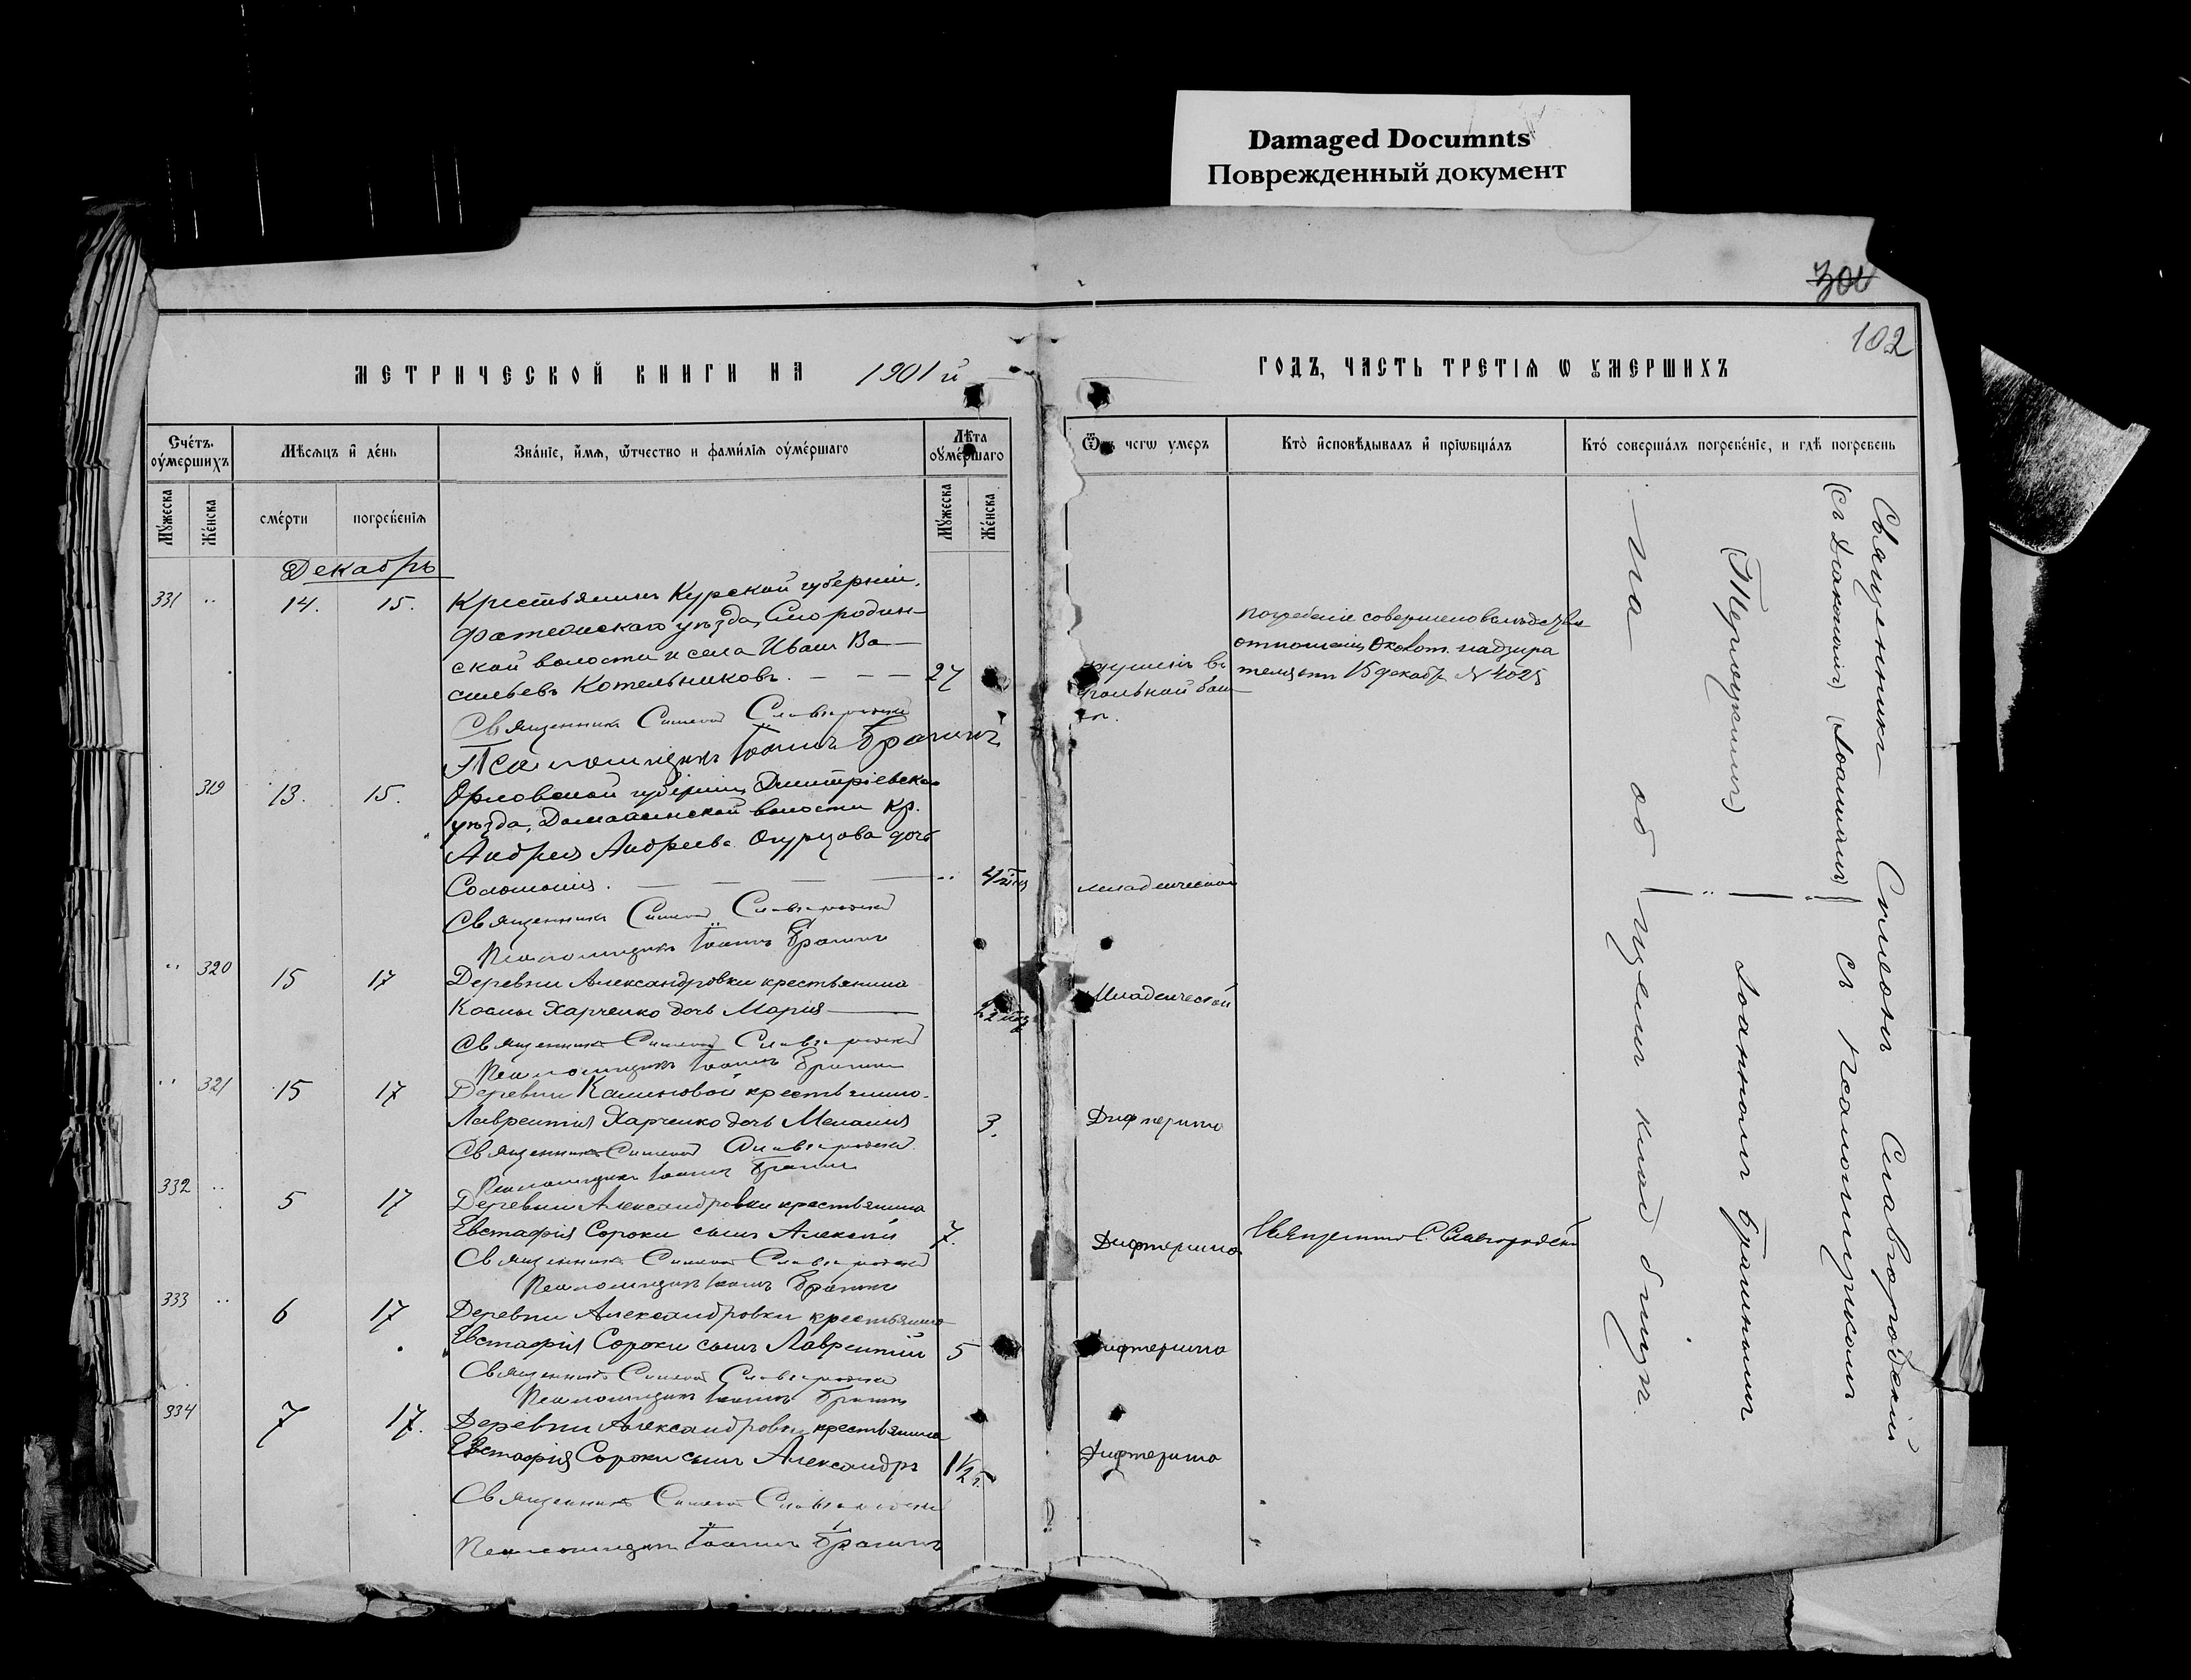 Damaged Documnts
Поврежденный документ
300
102
МЕТРИЧЕСКОЙ КНИГИ НА 1901 й
ГОДЪ, ЧАСТЬ ТРЕТІѦ Ѡ ОУМЕРШИХЪ
Счетъ оумершихъ
Мѣсѧцъ и день
Званіе, имѧ, ѿчество и фамиліѧ оумершаго
Лѣта оумершаго
Ѿ чегѡ умеръ
Кто исповѣдывалъ и пріѡбщалъ
Кто совершалъ погребеніе, и гдѣ погребенъ
Мужеска
Женска
смерти
погребеніѧ
Мужеска
Женска
Декабрь
331 .. 14. 15. Крестьянинъ Курской губерніи,
Фатежскаго уѣзда, Смородин-
ской волости и села Иванъ Ва-
сильевъ Котельниковъ. — — — 27
въ
угольной
Погребеніе совершено вслѣдствіе
отношенія Околот. надзира
теля отъ 15 декабр. № 4025
Священникъ Симеонъ Славгородскій
Псаломщикъ Іоаннъ Брагинъ
319 13. 15. Орловской губерніи, Дмитріевскаго
уѣзда, волости кр.
Андрея Андреева Огурцова дочь
Соломонія. — — — .. 4 младенческой
Священникъ Симеонъ Славгородскій
Псаломщикъ Іоаннъ Брагинъ
.. 320 15 17 Деревни Александровки крестьянина
Космы Харченко дочь Марія — Младенческой
Священникъ Симеонъ Славгородскій
Псаломщикъ Іоаннъ Брагинъ
.. 321 15 17 Деревни Калиновой крестьянина
Лаврентія Харченко дочь Меланія 3. Дифтерита
Священникъ Симеонъ Славгородскій
Псаломщикъ Іоаннъ Брагинъ
332 .. 5 17 Деревни Александровки крестьянина
Евстафія Сороки сынъ Алексѣй 7. Дифтерита Священникъ С. Славгородскій
Священникъ Симеонъ Славгородскій
Псаломщикъ Іоаннъ Брагинъ
333 .. 6 17 Деревни Александровки крестьянина
Евстафія Сороки сынъ Лаврентій 5 Дифтерита
Священникъ Симеонъ Славгородскій
Псаломщикъ Іоаннъ Брагинъ
334 7 17. Деревни Александровки крестьянина
Евстафія Сороки сынъ Александръ 1 1/2 г. Дифтерита
Священникъ Симеонъ Славгородскій
Псаломщикъ Іоаннъ Брагинъ
Священникъ Симеонъ Славгородскій
(съ Діакономъ) (Іоанномъ) съ псаломщикомъ
(Терлецкимъ) Іоанномъ Брагинымъ
на общемъ кладбищѣ.